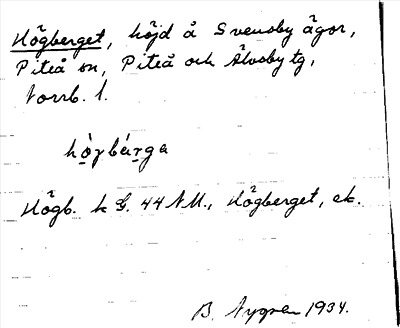 Högberget, höjd å Svensby ägor,
Piteå sn, Piteå och Älvsby tg,
Norrb. l.
hò̱γbáṟga
Högb. k G. 44 NU., Högberget, ek.
B. Nygren 1934.